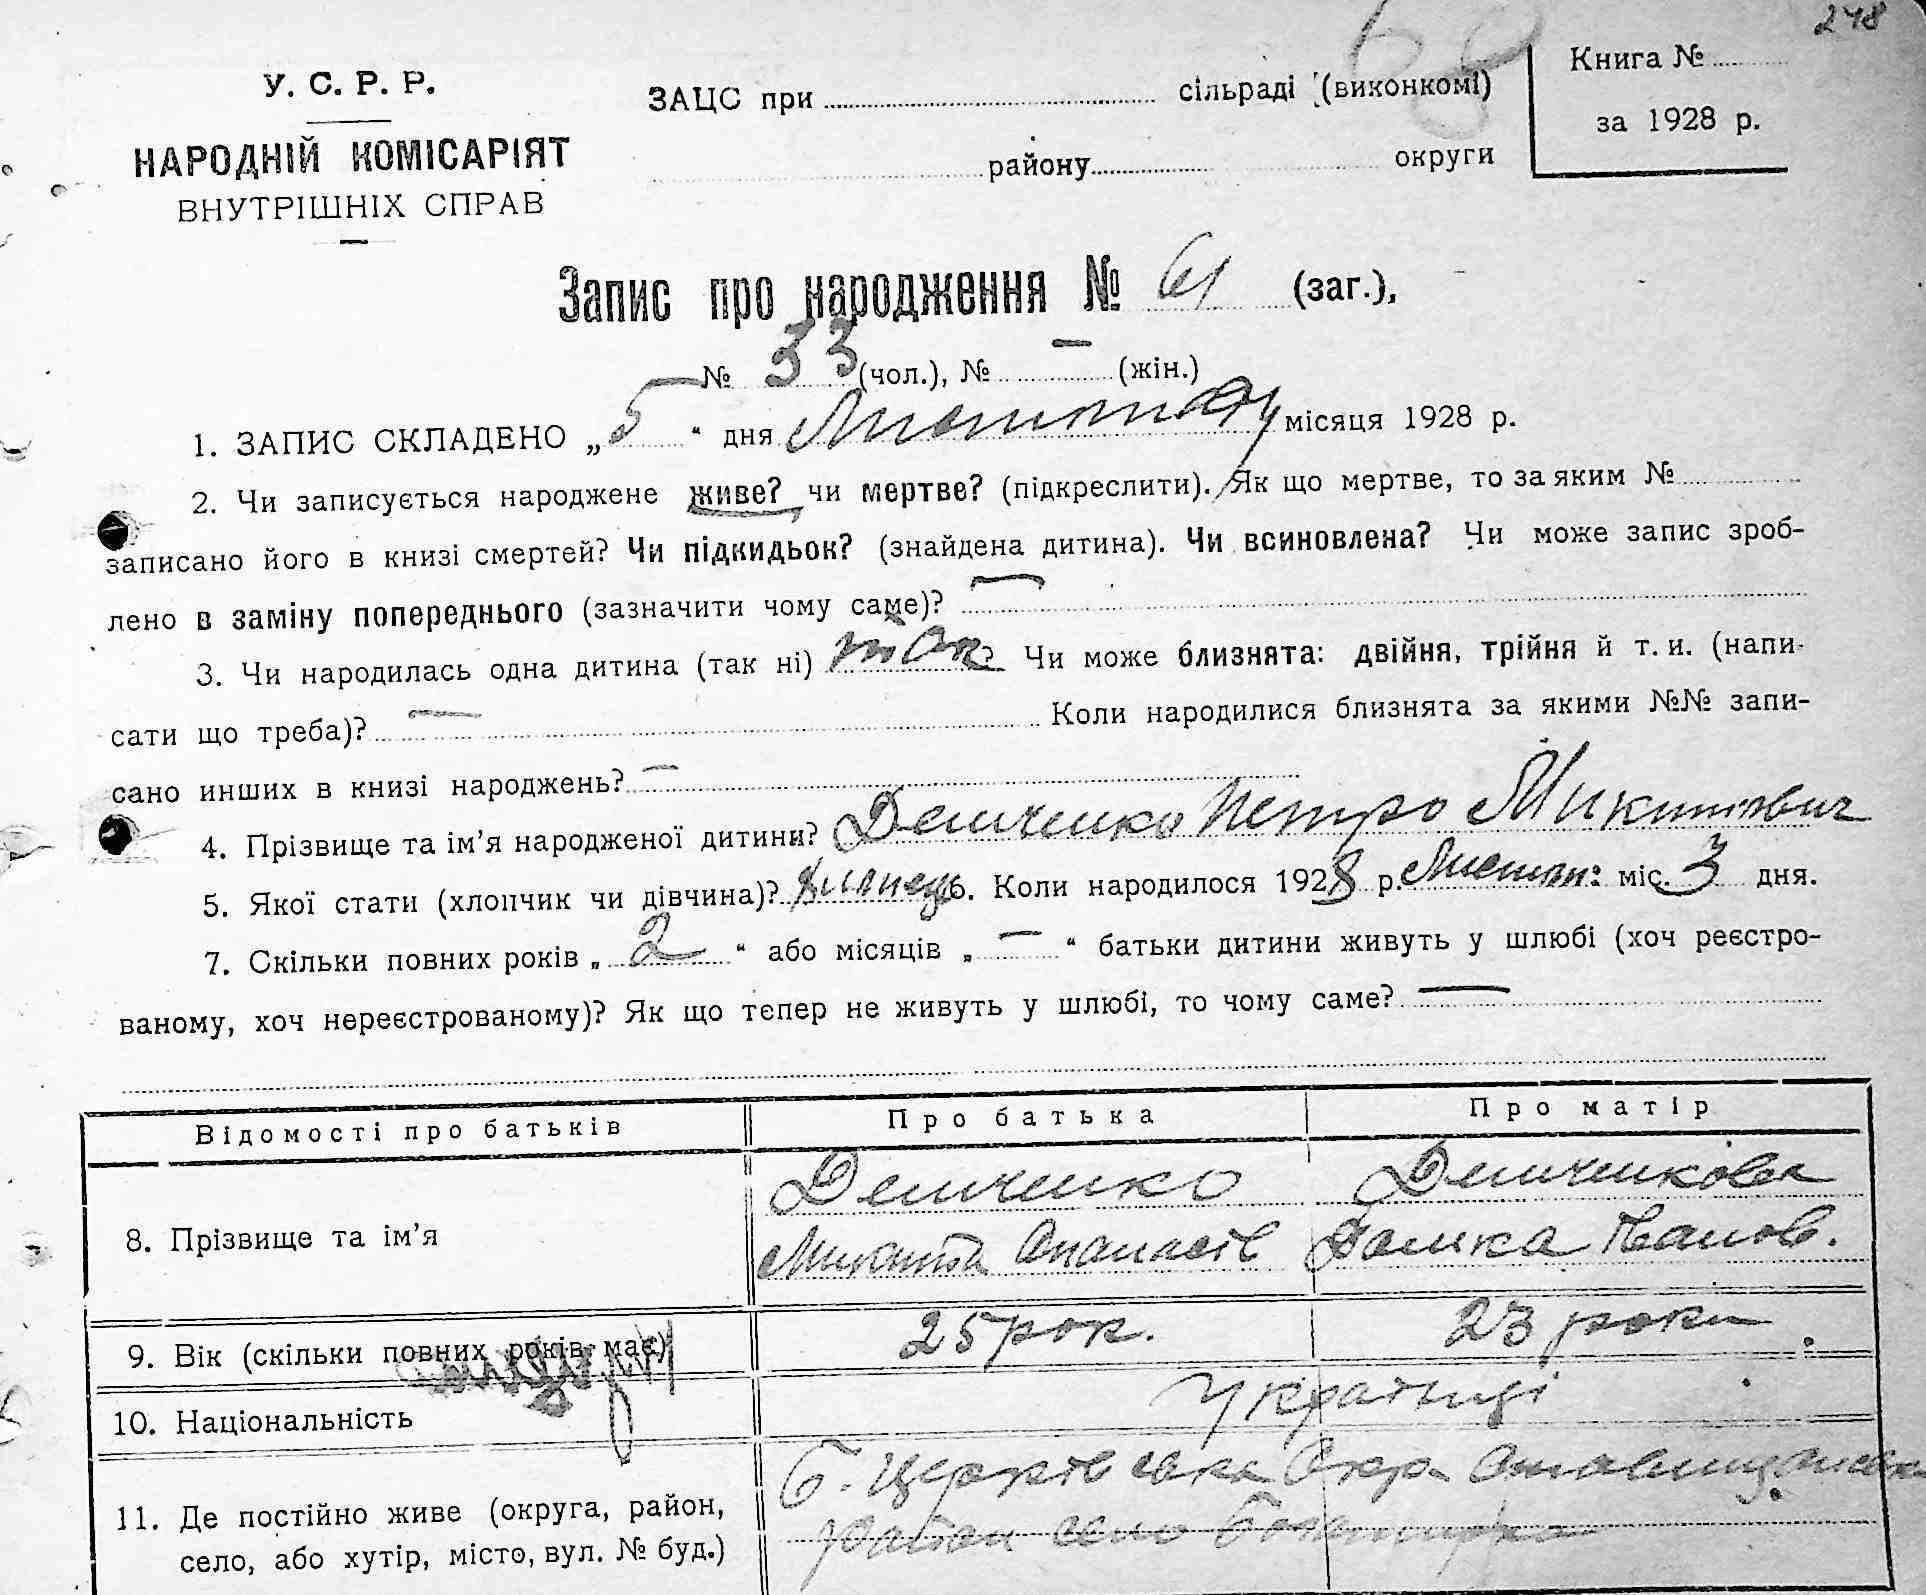 248
У. С. Р. Р.
НАРОДНІЙ КОМІСАРІЯТ
ВНУТРІШНІХ СПРАВ
ЗАЦС при сільраді (виконкомі)
району округи
Книга №
за 1928 р.
Запис про народження № 61 (заг.),
№ 33 (чол.), № — (жін.)
1. ЗАПИС СКЛАДЕНО „5“ дня Листопаду місяця 1928 р.
2. Чи записується народжене живе? чи мертве? (підкреслити). Як що мертве, то за яким №
записано його в книзі смертей? Чи підкидьок? (знайдена дитина). Чи всиновлена? Чи може запис зроб-
лено в заміну попереднього (зазначити чому саме)? —
3. Чи народилась одна дитина (так ні) так? Чи може близнята: двійня, трійня й т. и. (напи-
сати що треба)? — Коли народилися близнята за якими №№ запи-
сано инших в книзі народжень? —
4. Прізвище та ім’я народженої дитини? Демченко Петро Микитович
5. Якої стати (хлопчик чи дівчина)? 6. Коли народилося 1928 р. Листоп: міс. 3 дня.
7. Скільки повних років „2“ або місяців „—“ батьки дитини живуть у шлюбі (хоч реєстро-
ваному, хоч нереєстрованому)? Як що тепер не живуть у шлюбі, то чому саме? —
Відомості про батьків Про батька Про матір
8. Прізвище та ім’я
Демченко Демченкова
Микита Опанасів Домка Іванов.
9. Вік (скільки повних років має) 25 рок. 23 роки
10. Національність Українці
11. Де постійно живе (округа, район,
село, або хутір, місто, вул. № буд.)
Б. Церківська Окр. Ставищанськ
район село